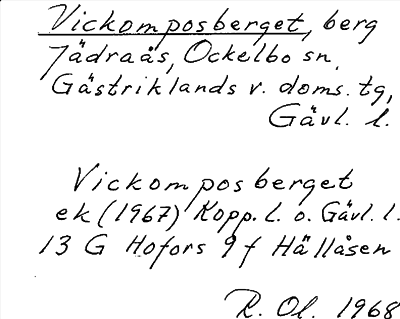 Vickomposberget, berg
Jädraås, Ockelbo sn,
Gästriklands v. doms. tg,
Gävl. l.
Vickomposberget
ek (1967) Kopp. l. o. Gävl. l.
13 G Hofors 9 f Hällåsen
R. Ol. 1968